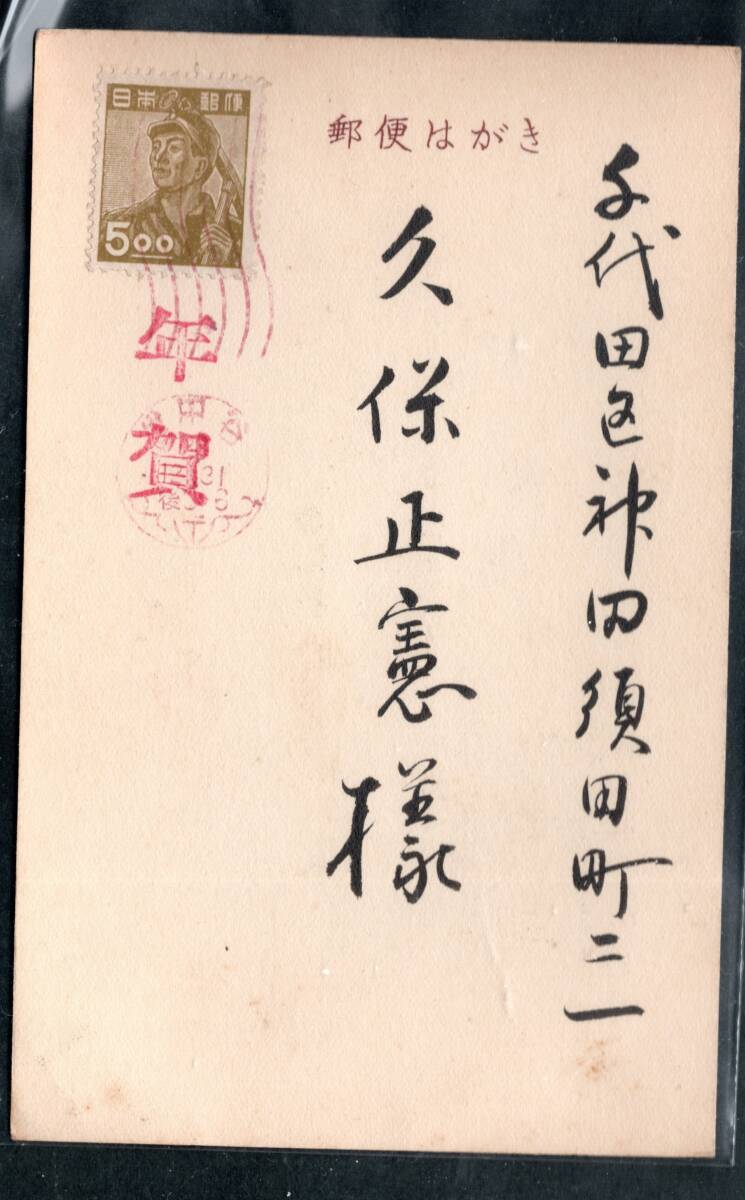 日本郵便
5.00
郵便はがき
千代田区神田須田町二ノ一
久保正憲様
年賀